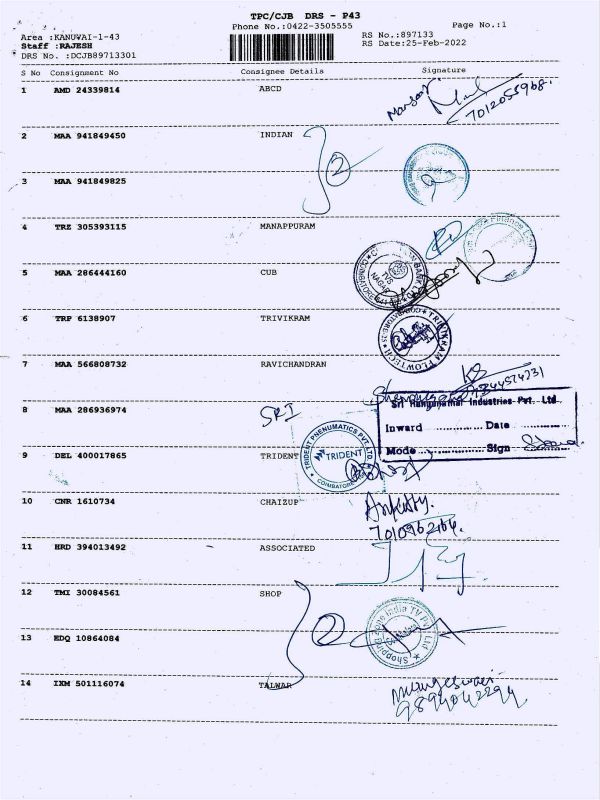 TPC/CJB DRS - P43
Phone No.:0422-3505555
Page No.:1
Area :KANUWAI-1-43
Staff :RAJESH
DRS No. :DCJB89713301
RS No.:897133
RS Date:25-Feb-2022
S No Consignment No Consignee Details Signature
1 AMD 24339814 ABCD
7012055968.
2 MAA 941849450 INDIAN
3 MAA 941849825
4 TRZ 305393115 MANAPPURAM
5 MAA 286444160 CUB
TVS NAGAR
6 TRP 6138907 TRIVIKRAM
TRIVIKRAM FLOWTECH COIMBATORE-25
7 MAA 566808732 RAVICHANDRAN
8 MAA 286936974 SRI
Sri Ranganathar Industries Pvt. Ltd.
Inward Date
Mode Sign
9 DEL 400017865 TRIDENT
TRIDENT PNEUMATICS PVT. LTD
TRIDENT
COIMBATORE
10 CNR 1610734 CHAIZUP
7010962164.
11 HRD 394013492 ASSOCIATED
12 TMI 30084561 SHOP
13 EDQ 10864084
Shopping Zone India TV Pvt Ltd
14 IXM 501116074 TALWAR
9894042294